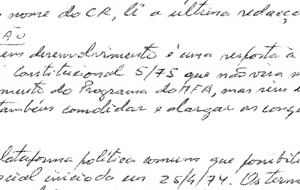 nome do CR, lê a última redacção
ÃO
desenvolvimento é uma resposta à
Constitucional 5/75 que não visa
mento do Programa do MFA, mas sim
também consolidar e alargar as conq
plataforma política comum que possibili
cial iniciado em 25/4/74. Os term